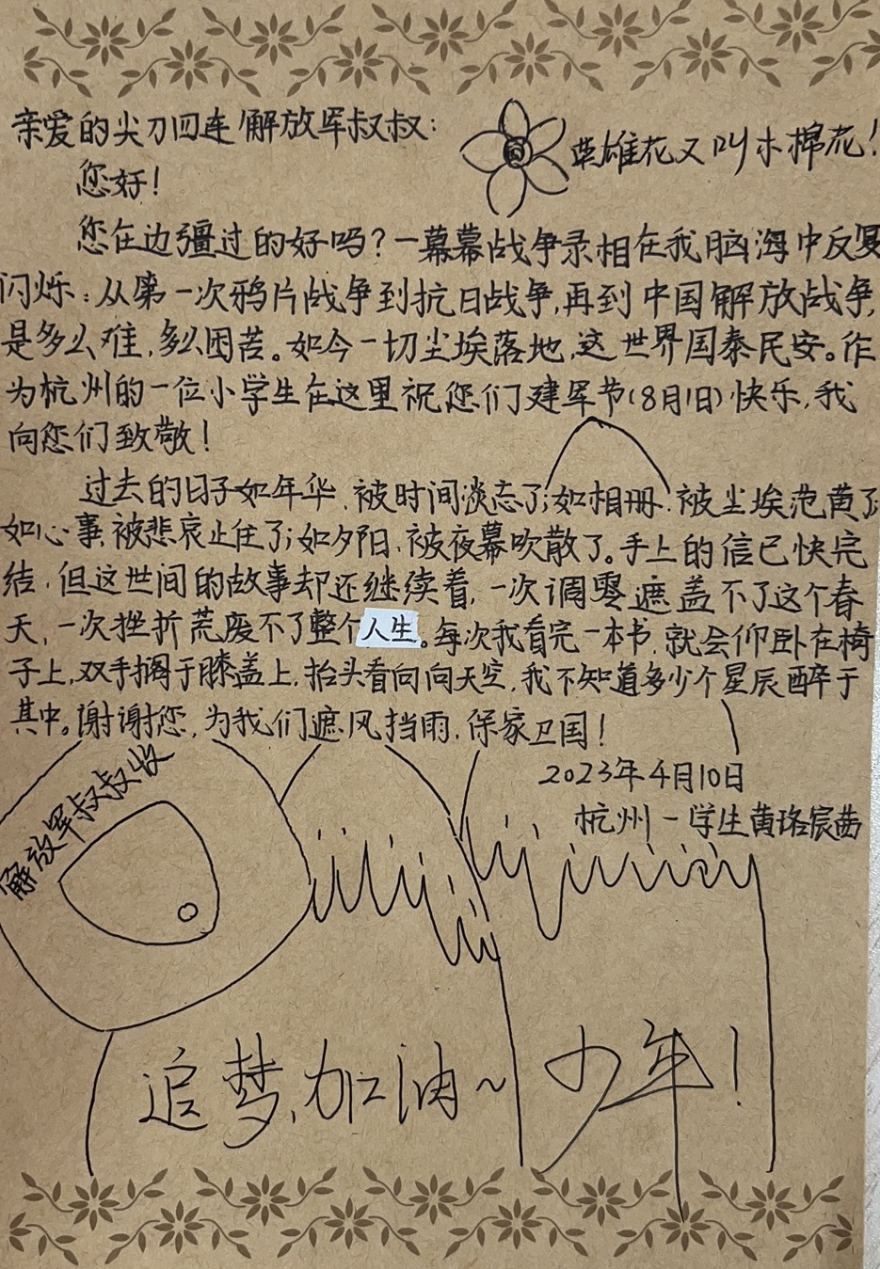 亲爱的尖刀四连解放军叔叔:
英雄花又叫木棉花!
您好!
您在边疆过的好吗?一幕幕战争录相在我脑海中反复
闪烁:从第一次鸦片战争到抗日战争,再到中国解放战争,
是多么难,多么困苦。如今一切尘埃落地,这世界国泰民安。作
为杭州的一位小学生在这里祝您们建军节(8月1日)快乐,我
向您们致敬!
过去的日子如年华,被时间淡忘了;如相册,被尘埃范黄了;
如心事,被悲哀止住了;如夕阳,被夜幕吹散了。手上的信已快完
结,但这世间的故事却还继续着,一次调零遮盖不了这个春
天,一次挫折荒废不了整个人生。每次我看完一本书,就会仰卧在椅
子上,双手搁于膝盖上,抬头看向向天空,我不知道多少个星辰醉于
其中。谢谢您,为我们遮风挡雨,保家卫国!
2023年4月10日
杭州一学生黄珞宸茜
解放军叔叔收
追梦,加油~少年!